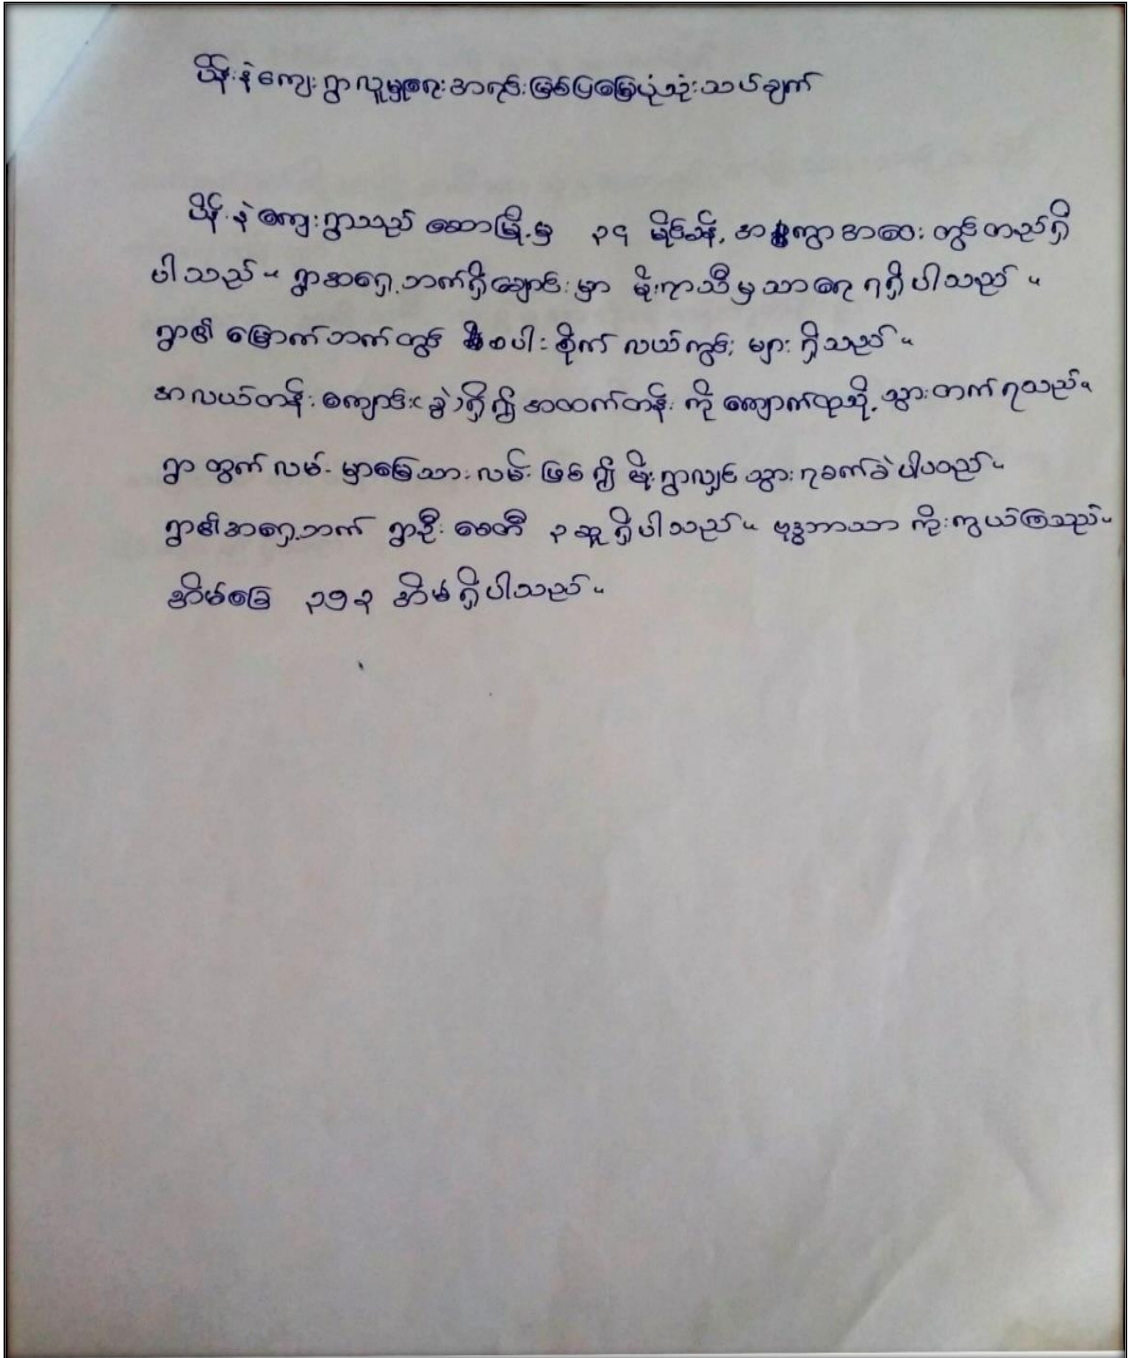 ပိန်းနဲကျေးရွာလူမှုရေးအရင်းမြစ်ပြမြေပုံသုံးသပ်ချက်
ပိန်းနဲကျေးရွာသည် ဆောမြို့မှ ၃၄ မိုင်ခန့် အကွာအဝေး တွင်တည်ရှိ
ပါသည်။ ရွာအရှေ့ဘက်ရှိချောင်းမှာ မိုးရာသီမှသာရေ ရရှိပါသည်။
ရွာ၏ မြောက်ဘက်တွင် စပါးစိုက် လယ်ကွင်းများ ရှိသည်။
အလယ်တန်းကျောင်း(ခွဲ)ရှိ၍ အထက်တန်း ကို ကျောက်ထုသို့ သွားတက်ရသည်။
ရွာ ထွက် လမ်းမှာမြေသားလမ်းဖြစ်၍ မိုးရွာလျှင် သွားရခက်ခဲပါသည်။
ရွာ၏အရှေ့ဘက် ရွာဦးစေတီ ၃ဆူရှိပါသည်။ ဗုဒ္ဓဘာသာ ကိုးကွယ်ကြသည်။
အိမ်ခြေ ၃၅၃ အိမ်ရှိပါသည်။